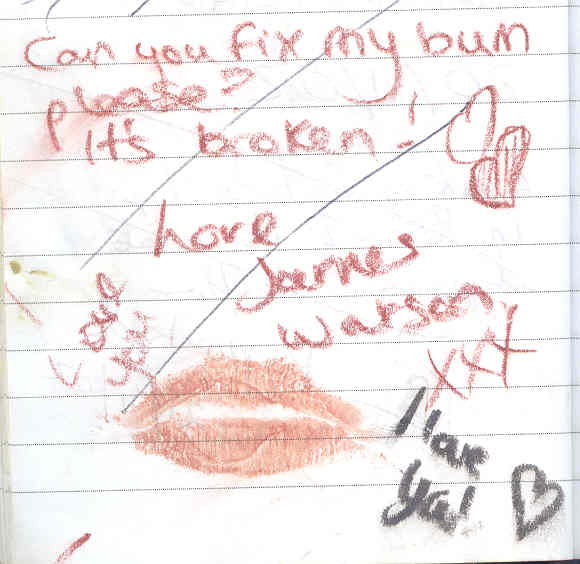 Can you fix my bum
please
It's broken!
Love
James
Watson
xxx
I love
ya!